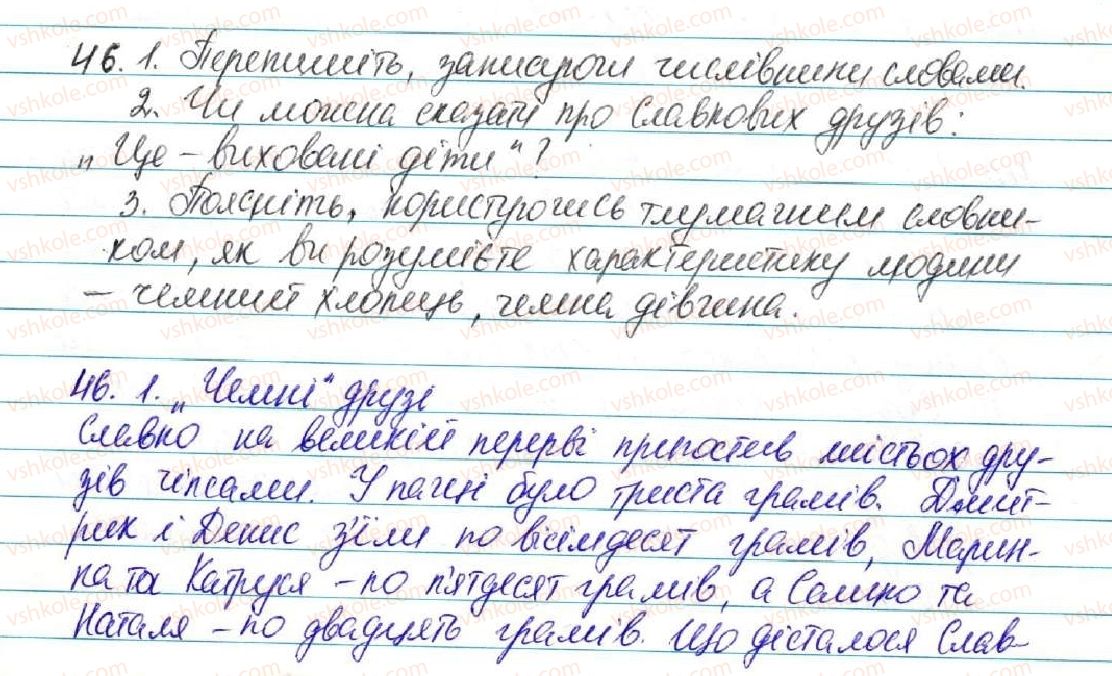 46. 1. Перепишіть, записуючи числівники словами.
2. Чи можна сказати про Славкових друзів:
„Це – виховані діти“?
3. Поясніть, користуючись тлумачним словни-
ком, як ви розумієте характеристику людини
– чемний хлопець, чемна дівчина.
46. 1. „Чемні“ друзі
Славко на великій перерві пригостив шістьох дру-
зів чіпсами. У пачці було триста грамів. Дмит-
рик і Денис з'їли по вісімдесят грамів, Марин-
ка та Катруся – по п'ятдесят грамів, а Сашко та
Наталя – по двадцять грамів. Що дісталося Слав-